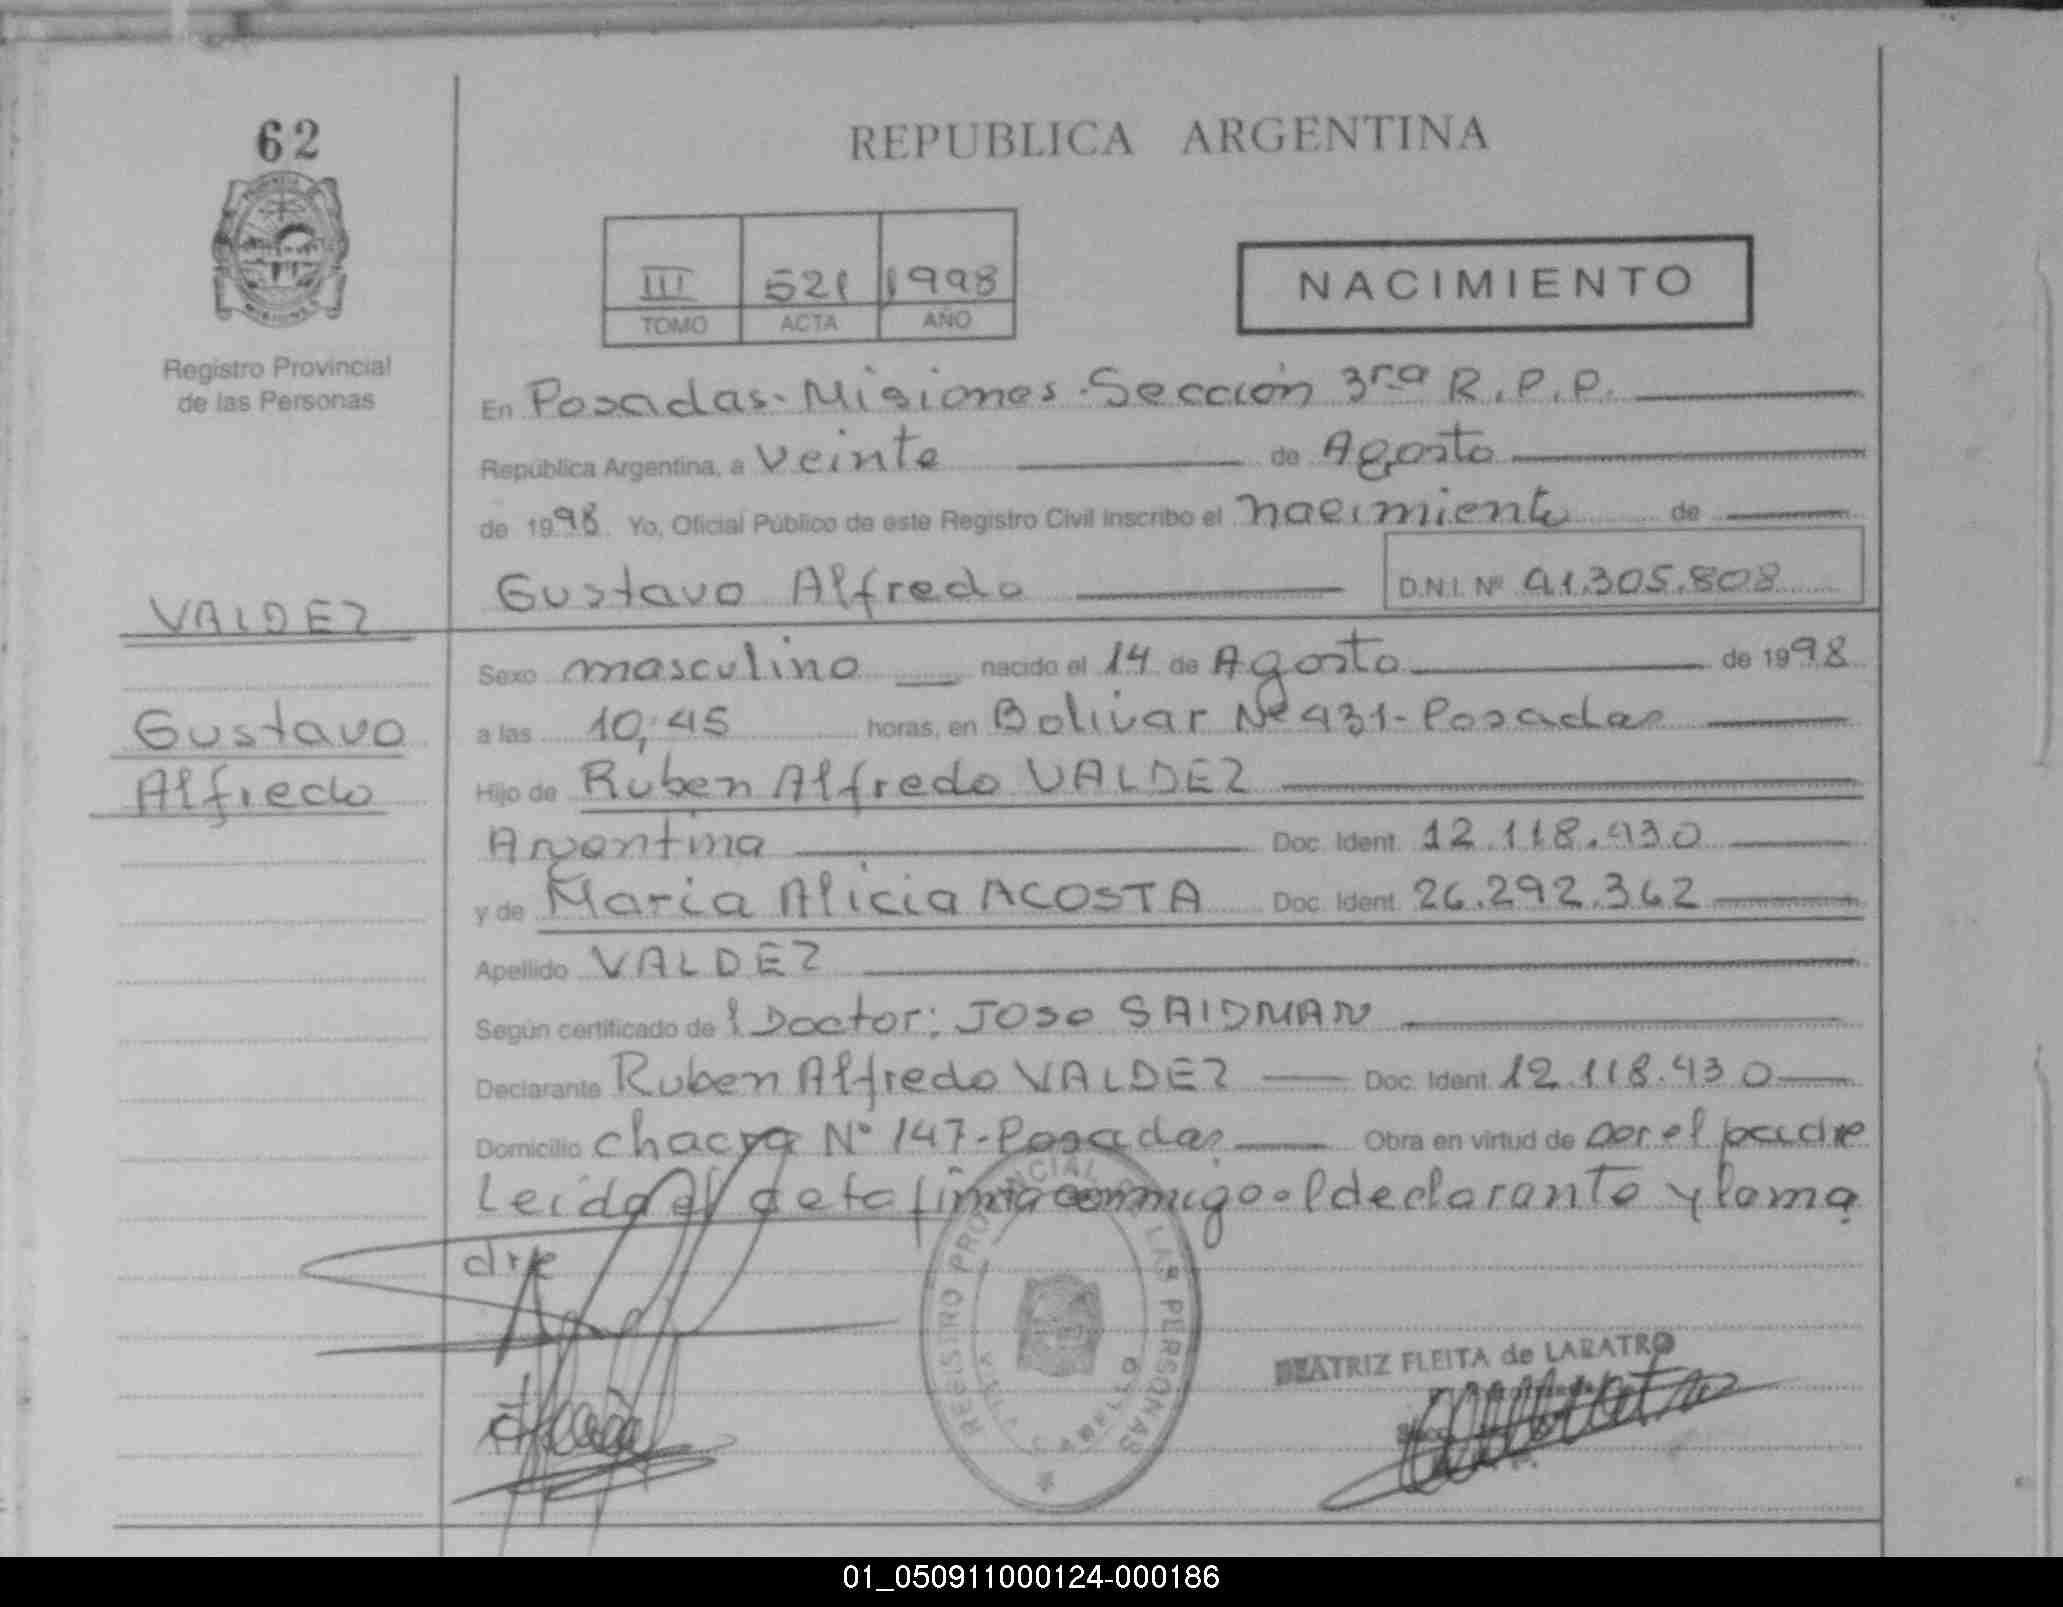 62
REPUBLICA ARGENTINA
III 521 1998
TOMO ACTA AÑO
NACIMIENTO
Registro Provincial
de las Personas
En Posadas - Misiones - Sección 3ra R.P.P.
República Argentina, a veinte de Agosto
de 1998 Yo, Oficial Público de este Registro Civil inscribo el nacimiento de
Gustavo Alfredo D.N.I. Nº 41.305.808
VALDEZ
Sexo masculino nacido el 14 de Agosto de 1998
Gustavo
Alfredo
a las 10,45 horas, en Bolivar Nº 431 - Posadas
Hijo de Ruben Alfredo VALDEZ
Argentina Doc. Ident. 12.118.430
y de Maria Alicia ACOSTA Doc. Ident. 26.292.362
Apellido VALDEZ
Según certificado del Doctor: Jose SAIDMAN
Declarante Ruben Alfredo VALDEZ Doc. Ident. 12.118.430
Domicilio chacra Nº 147 - Posadas Obra en virtud de ser el padre
Leida el acta firma conmigo el declarante y la ma
dre
REGISTRO PROVINCIAL DE LAS PERSONAS
BEATRIZ FLEITA de LABATRO
01_050911000124-000186